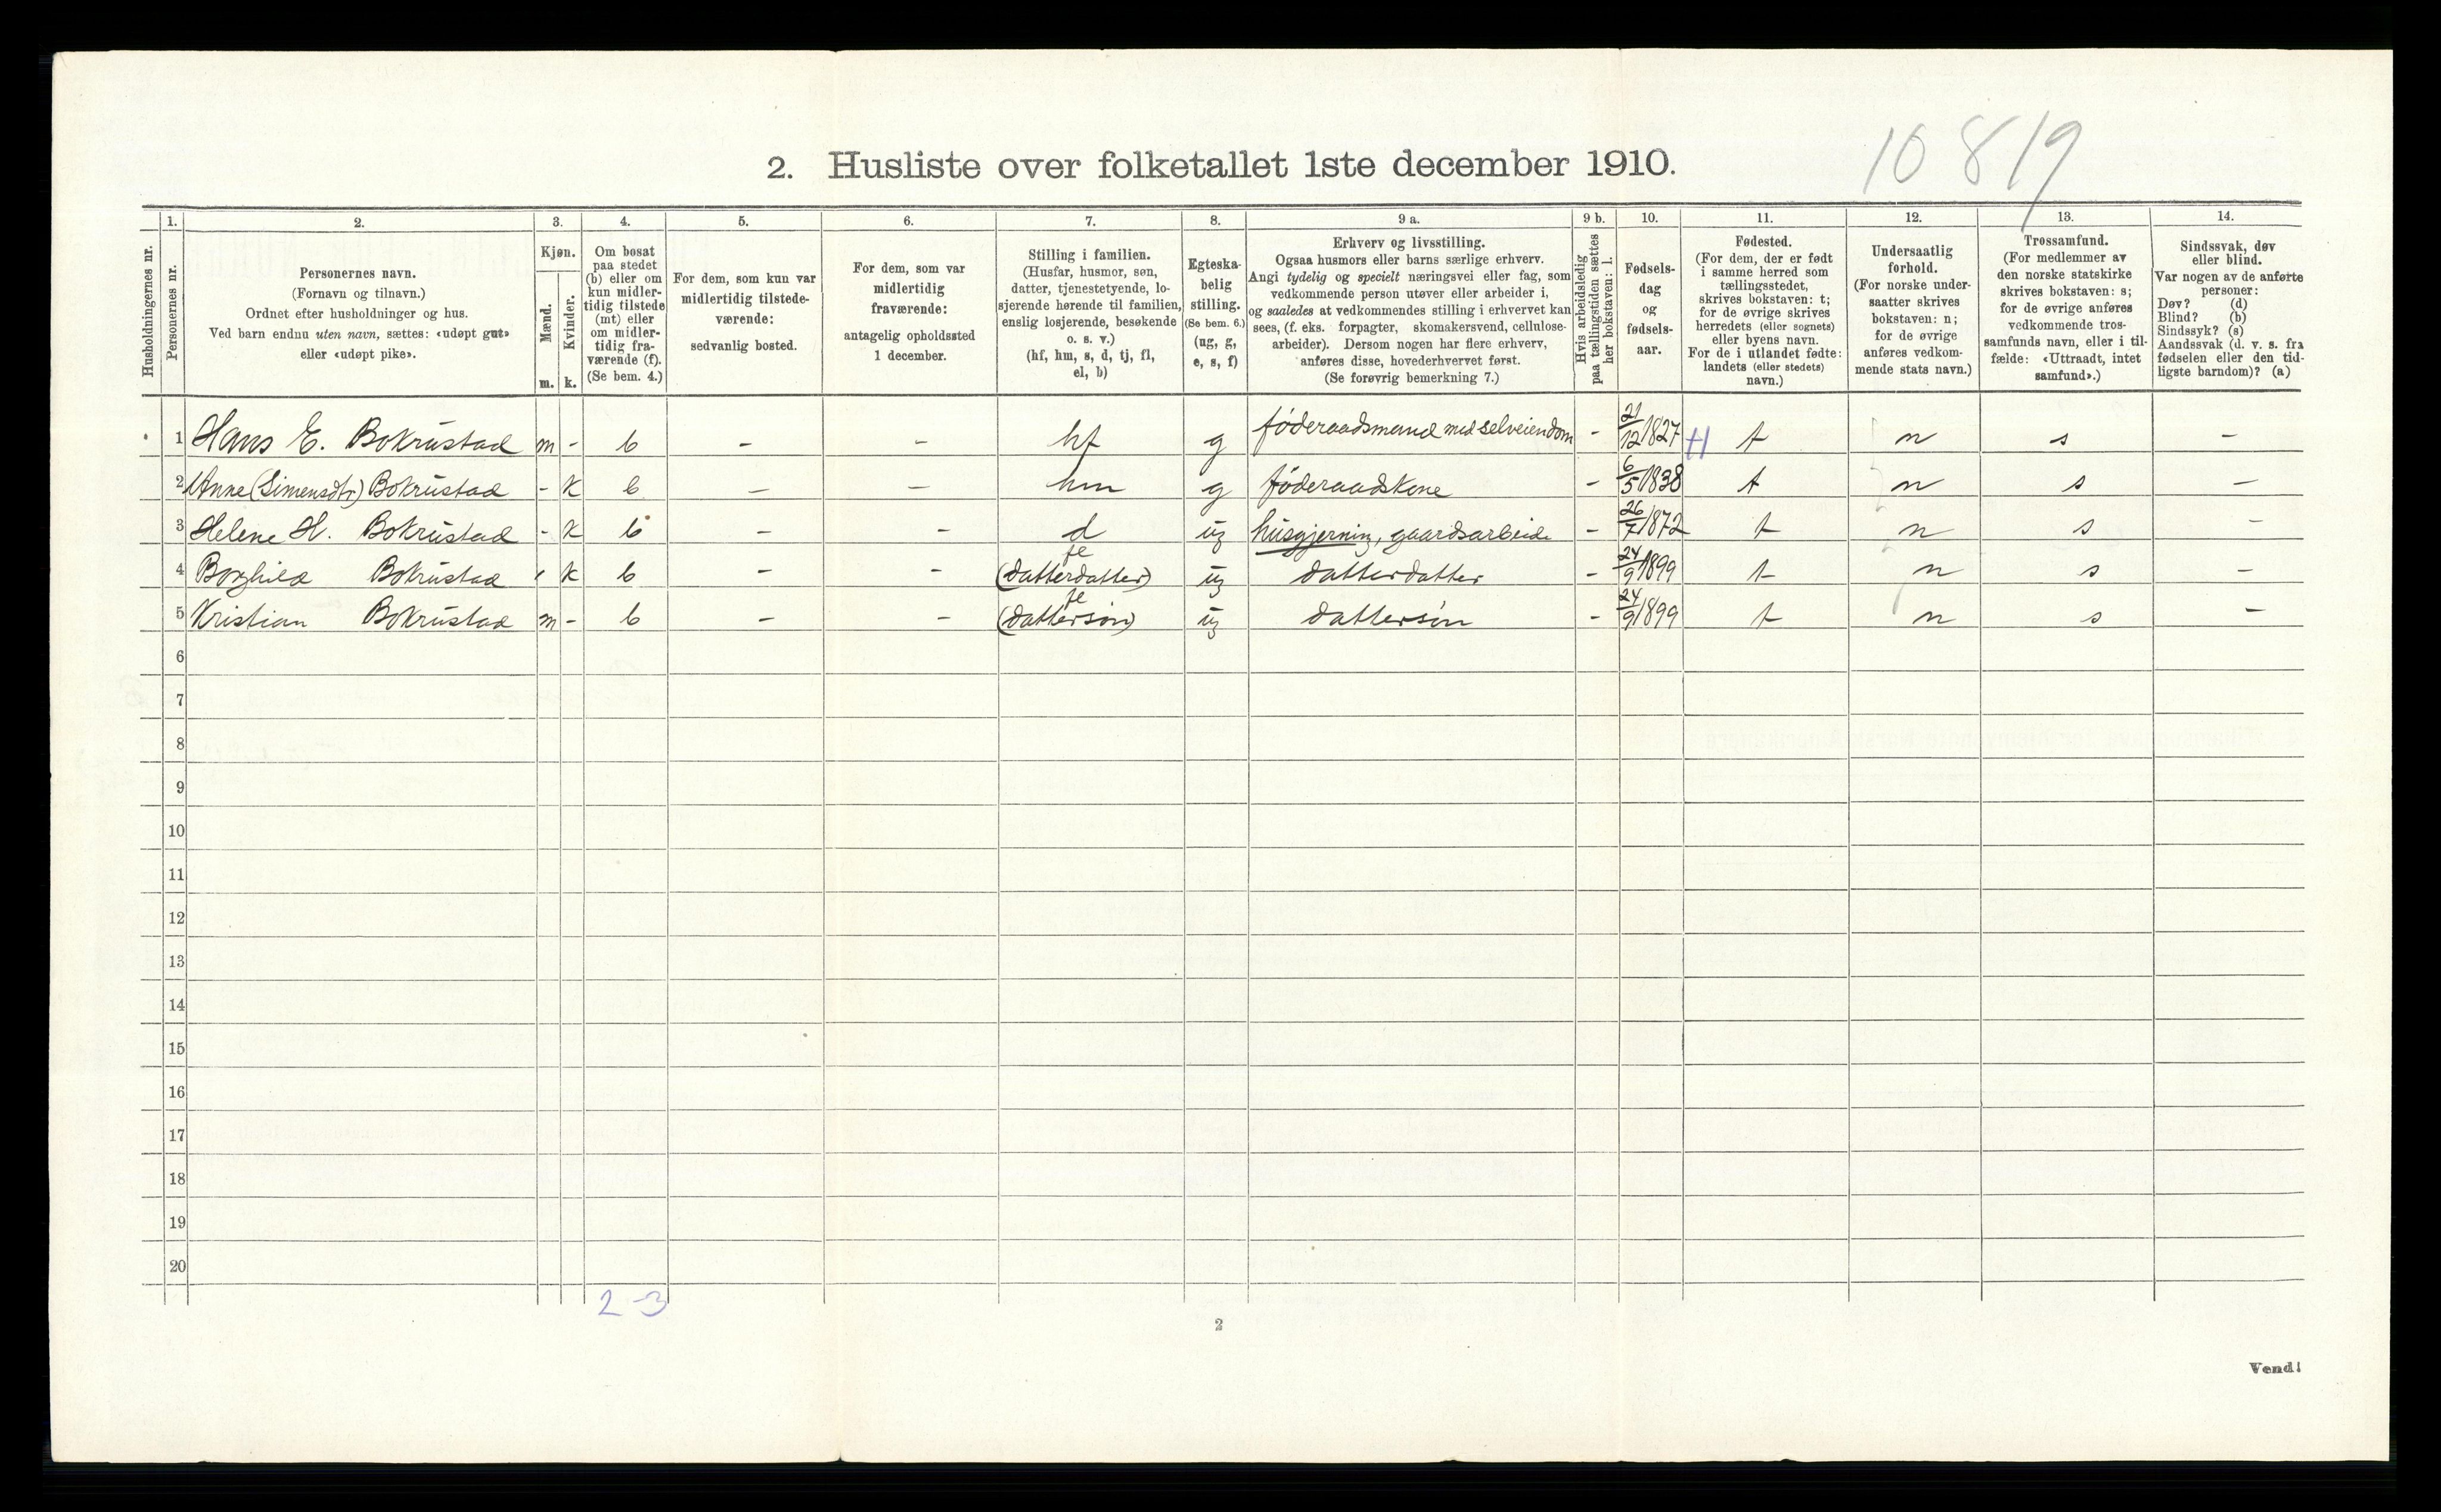 10 819
2. Husliste over folketallet 1ste december 1910.
Husholdningernes nr.
1.
Personernes nr.
2.
Personernes navn.
(Fornavn og tilnavn.)
Ordnet efter husholdninger og hus.
Ved barn endnu uten navn, sættes: «udøpt gut»
eller «udøpt pike».
3.
Kjøn.
Mænd.
m.
Kvinder.
k.
4.
Om bosat
paa stedet
(b) eller om
kun midler-
tidig tilstede
(mt) eller
om midler-
tidig fra-
værende (f).
(Se bem. 4.)
5.
For dem, som kun var
midlertidig tilstede-
værende:
sedvanlig bosted.
6.
For dem, som var
midlertidig
fraværende:
antagelig opholdssted
1 december.
7.
Stilling i familien.
(Husfar, husmor, søn,
datter, tjenestetyende, lo-
sjerende hørende til familien,
enslig losjerende, besøkende
o. s. v.)
(hf, hm, s, d, tj, fl,
el, b)
8.
Egteska-
belig
stilling.
(Se bem. 6.)
(ug, g,
e, s, f)
9 a.
Erhverv og livsstilling.
Ogsaa husmors eller barns særlige erhverv.
Angi tydelig og specielt næringsvei eller fag, som
vedkommende person utøver eller arbeider i,
og saaledes at vedkommendes stilling i erhvervet kan
sees, (f. eks. forpagter, skomakersvend, cellulose-
arbeider). Dersom nogen har flere erhverv,
anføres disse, hovederhvervet først.
(Se forøvrig bemerkning 7.)
9 b.
Hvis arbeidsledig
paa tællingstiden sættes
her bokstaven: l.
10.
Fødsels-
dag
og
fødsels-
aar.
11.
Fødested.
(For dem, der er født
i samme herred som
tællingsstedet,
skrives bokstaven: t;
for de øvrige skrives
herredets (eller sognets)
eller byens navn.
For de i utlandet fødte:
landets (eller stedets)
navn.)
12.
Undersaatlig
forhold.
(For norske under-
saatter skrives
bokstaven: n;
for de øvrige
anføres vedkom-
mende stats navn.)
13.
Trossamfund.
(For medlemmer av
den norske statskirke
skrives bokstaven: s;
for de øvrige anføres
vedkommende tros-
samfunds navn, eller i til-
fælde: «Uttraadt, intet
samfund».)
14.
Sindssvak, døv
eller blind.
Var nogen av de anførte
personer:
Døv? (d)
Blind? (b)
Sindssyk? (s)
Aandssvak (d. v. s. fra
fødselen eller den tid-
ligste barndom)? (a)
1 Hans E. Bokrustad m - b - - hf g føderaadsmand med selveiendom - 21/12 1827 H t n s -
2 Anne (Simensdtr) Bokrustad - k b - - hm g føderaadskone - 6/5 1838 t n s -
3 Helene H. Bokrustad - k b - - d ug husgjerning, gaardsarbeide - 26/7 1872 t n s -
4 Borghild Bokrustad - k b - - fl (datterdatter) ug datterdatter - 24/9 1899 t n s -
5 Kristian Bokrustad m - b - - fl (dattersøn) ug dattersøn - 24/9 1899 t n s -
6
7
8
9
10
11
12
13
14
15
16
17
18
19
20
2 - 3
2
Vend!